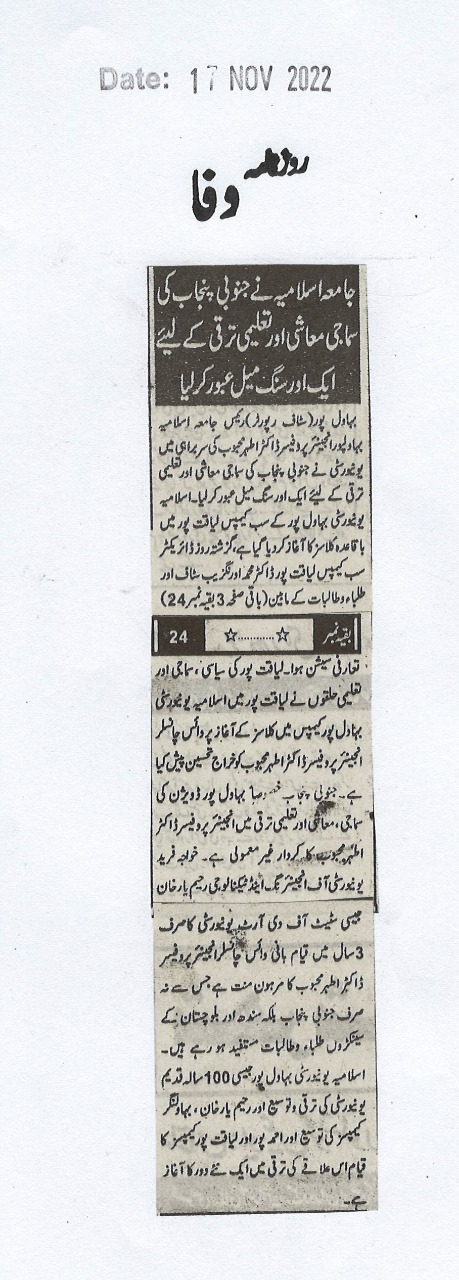 Date: 17 NOV 2022
روزنامہ
وفا
جامعہ اسلامیہ نے جنوبی پنجاب کی
سماجی معاشی اور تعلیمی ترقی کے لیئے
ایک اور سنگ میل عبور کر لیا
بہاول پور (سٹاف رپورٹر) رئیس جامعہ اسلامیہ
بہاولپور انجینئر پروفیسر ڈاکٹر اطہر محبوب کی سربراہی میں
یونیورسٹی نے جنوبی پنجاب کی سماجی معاشی اور تعلیمی
ترقی کے لیئے ایک اور سنگ میل عبور کر لیا۔ اسلامیہ
یونیورسٹی بہاول پور کے سب کیمپس لیاقت پور میں
باقاعدہ کلاسز کا آغاز کر دیا گیا ہے، گزشتہ روز ڈائریکٹر
سب کیمپس لیاقت پور ڈاکٹر محمد اورنگزیب سٹاف اور
طلباء و طالبات کے مابین (باقی صفحہ 3 بقیہ نمبر 24)
بقیہ نمبر ☆...........☆ 24
تعارفی سیشن ہوا۔ لیاقت پور کی سیاسی، سماجی اور
تعلیمی حلقوں نے لیاقت پور میں اسلامیہ یونیورسٹی
بہاول پور کیمپس میں کلاسز کے آغاز پر وائس چانسلر
انجینئر پروفیسر ڈاکٹر اطہر محبوب کو خراج تحسین پیش کیا
ہے۔ جنوبی پنجاب خصوصاً بہاول پور ڈویژن کی
سماجی، معاشی اور تعلیمی ترقی میں انجینئر پروفیسر ڈاکٹر
اطہر محبوب کا کردار غیر معمولی ہے۔ خواجہ فرید
یونیورسٹی آف انجینئرنگ اینڈ ٹیکنالوجی رحیم یار خان
جیسی سٹیٹ آف دی آرٹ یونیورسٹی کا صرف
3 سال میں قیام بانی وائس چانسلر انجینئر پروفیسر
ڈاکٹر اطہر محبوب کا مرہون منت ہے جس سے نہ
صرف جنوبی پنجاب بلکہ سندھ اور بلوچستان کے
سینکڑوں طلباء و طالبات مستفید ہو رہے ہیں۔
اسلامیہ یونیورسٹی بہاول پور جیسی 100 سالہ قدیم
یونیورسٹی کی ترقی و توسیع اور رحیم یار خان، بہاولنگر
کیمپسز کی توسیع اور احمد پور اور لیاقت پور کیمپسز کا
قیام اس علاقے کی ترقی میں ایک نئے دور کا آغاز
ہے۔